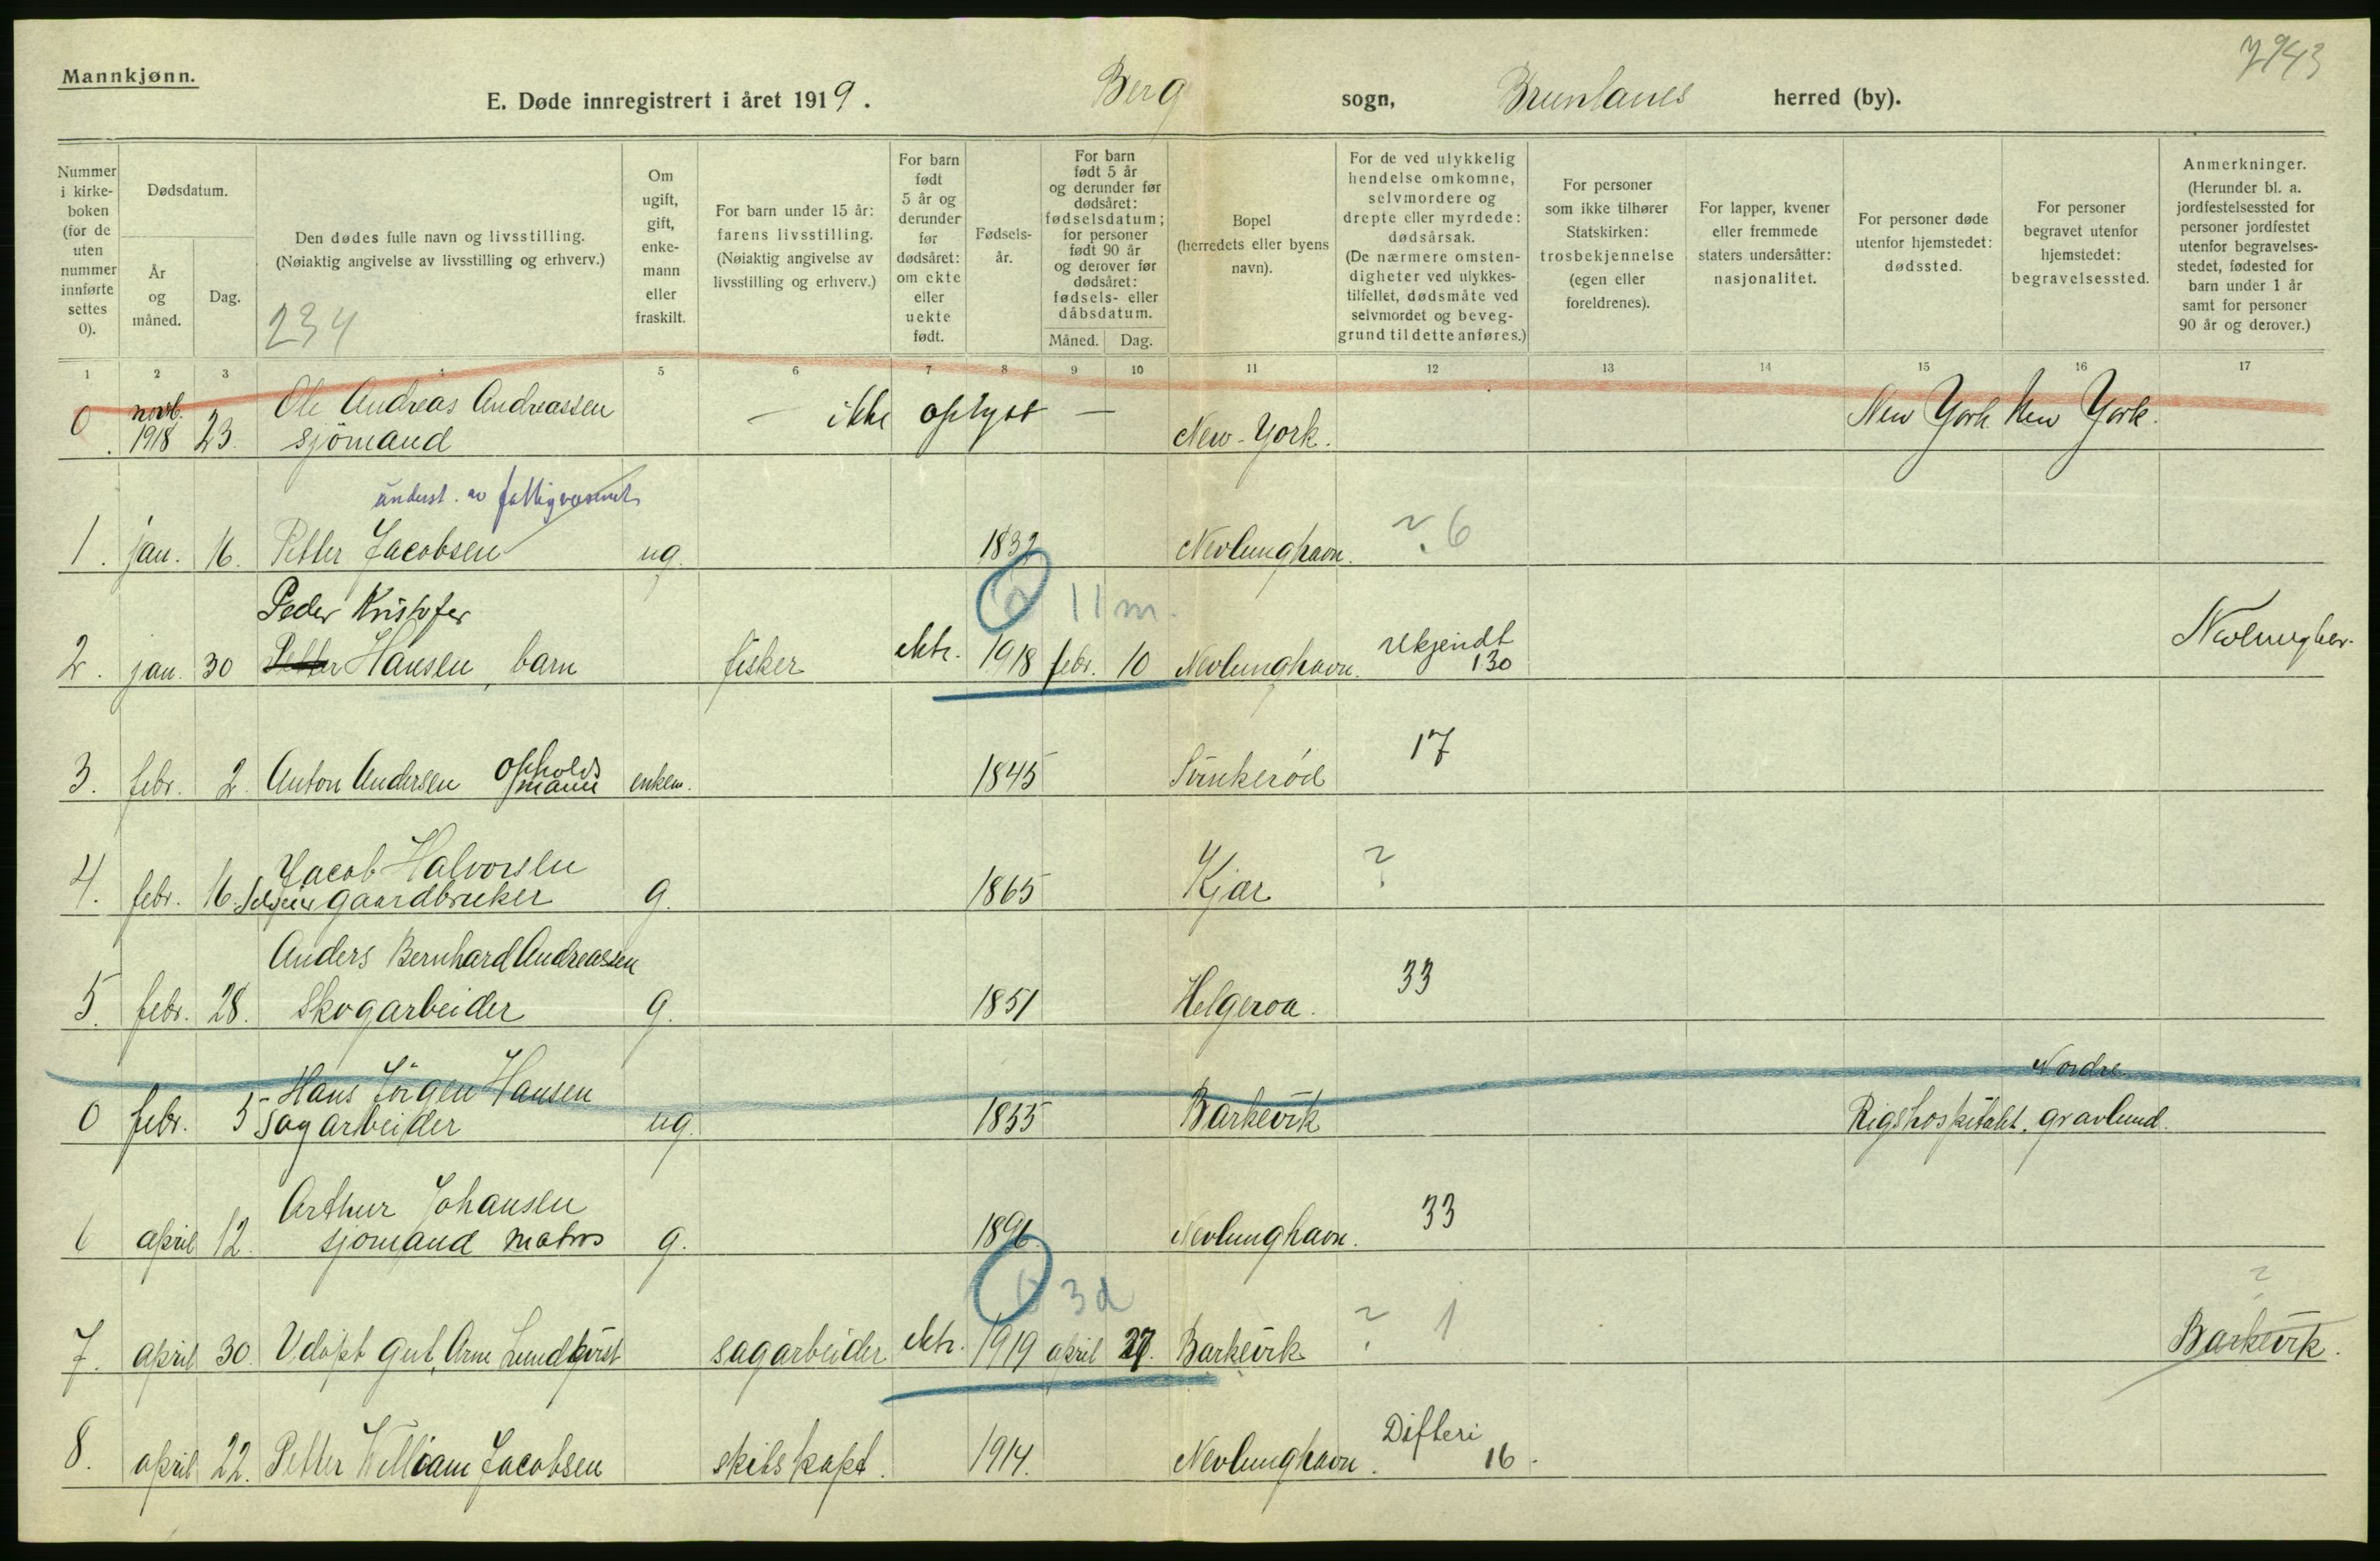 7943
Mannkjønn.
E. Døde innregistrert i året 1919. Berg sogn, Brunlanes herred (by).
Nummer i kirke- boken (for de uten nummer innførte settes 0).
Dødsdatum.
År og måned.
Dag.
Den dødes fulle navn og livsstilling.
(Nøiaktig angivelse av livsstilling og erhverv.)
234
Om ugift, gift, enke- mann eller fraskilt.
For barn under 15 år: farens livsstilling. (Nøiaktig angivelse av livsstilling og erhverv.)
For barn født 5 år og derunder før dødsåret: om ekte eller uekte født.
Fødsels- år.
For barn født 5 år og derunder før dødsåret: fødselsdatum; for personer født 90 år og derover før dødsåret: fødsels- eller dåbsdatum.
Måned. Dag.
Bopel (herredets eller byens navn).
For de ved ulykkelig hendelse omkomne, selvmordere og drepte eller myrdede: dødsårsak. (De nærmere omsten- digheter ved ulykkes- tilfellet, dødsmåte ved selvmordet og beveg- grund til dette anføres.)
For personer som ikke tilhører Statskirken: trosbekjennelse (egen eller foreldrenes).
For lapper, kvener eller fremmede staters undersåtter: nasjonalitet.
For personer døde utenfor hjemstedet: dødssted.
For personer begravet utenfor hjemstedet: begravelsessted.
Anmerkninger. (Herunder bl. a. jordfestelsessted for personer jordfestet utenfor begravelses- stedet, fødested for barn under 1 år samt for personer 90 år og derover.)
1 2 3 4 5 6 7 8 9 10 11 12 13 14 15 16 17
0. novb. 1918 23. Ole Andreas Andreassen — ikke oplyst — New-York. New York New York.
sjömand
underst. av fattigvæsenet
1. jan. 16. Petter Jacobsen ug. 1832 Nevlunghavn. ? 6
Peder Kristofer 11 m.
2. jan. 30 Petter Hansen, barn fisker ekte. 1918 febr. 10 Nevlunghavn. ukjendt 130 Nevlunghav.
3. febr. 2. Anton Andersen opholds mann enkem. 1845 17
4. febr. 16. Jacob Halvorsen
selveier gaardbruker g. 1865 Kjær ?
Anders Bernhard Andreassen
5. febr. 28. skogarbeider g. 1851 Helgeroa. 33
0 febr. 5 Hans Jörgen Hansen Nordre
sagarbeider ug. 1855 Barkevik Rigshospitalet. gravlund.
6 april 12. Arthur Johansen
sjömand matros g. 1896. Nevlunghavn. 33
3 d
7. april 30. Udöpt gut, Arne Lundkvist sagarbeider ekte. 1919 april 27. Barkevik ? 1 ? Barkevik.
8. april 22. Petter William Jacobsen skibskapt. 1914. Nevlunghavn. Difteri 16.